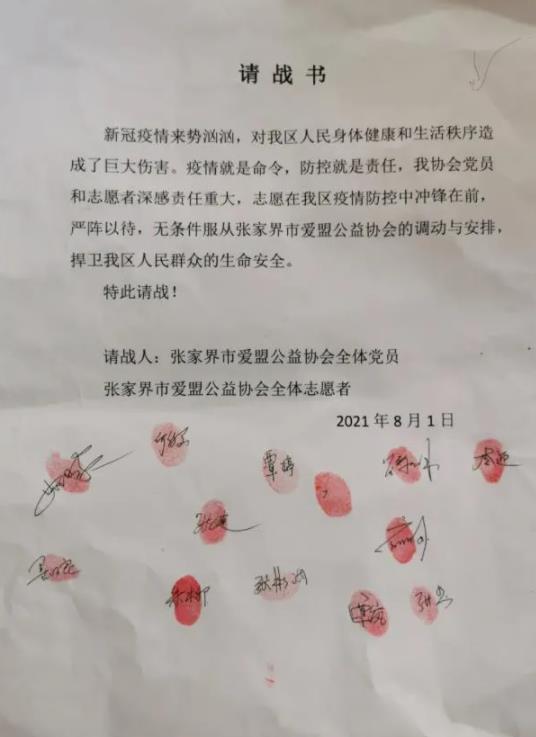 请战书
新冠疫情来势汹汹，对我区人民身体健康和生活秩序造
成了巨大伤害。疫情就是命令，防控就是责任，我协会党员
和志愿者深感责任重大，志愿在我区疫情防控中冲锋在前，
严阵以待，无条件服从张家界市爱盟公益协会的调动与安排，
捍卫我区人民群众的生命安全。
特此请战！
请战人：张家界市爱盟公益协会全体党员
张家界市爱盟公益协会全体志愿者
2021年8月1日
覃婷